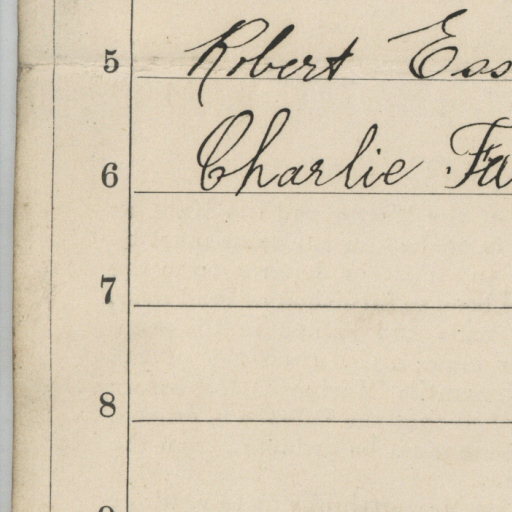 5 Robert Ess
6 Charlie Fa
7
8
9